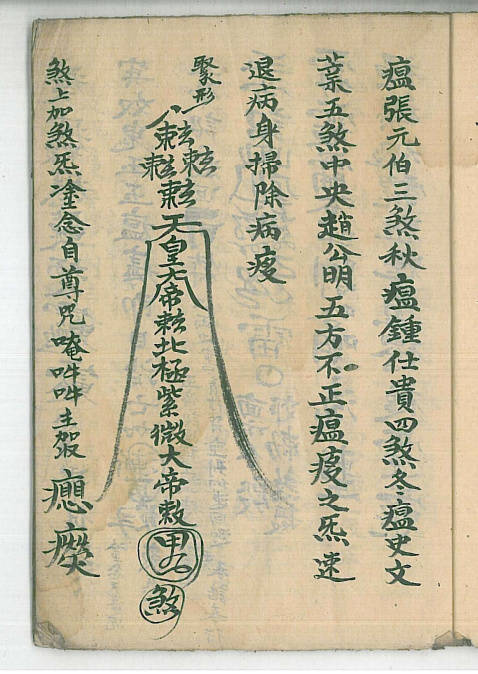 瘟張元伯三煞秋瘟鍾仕貴四煞冬瘟史文
葉五煞中央趙公明五方不正瘟疫之炁速
退病身掃除病疫
聚形
敕敕敕敕敕
天皇大帝敕北極紫微大帝敕
煞
煞上加煞炁塗念自尊咒唵吽吽